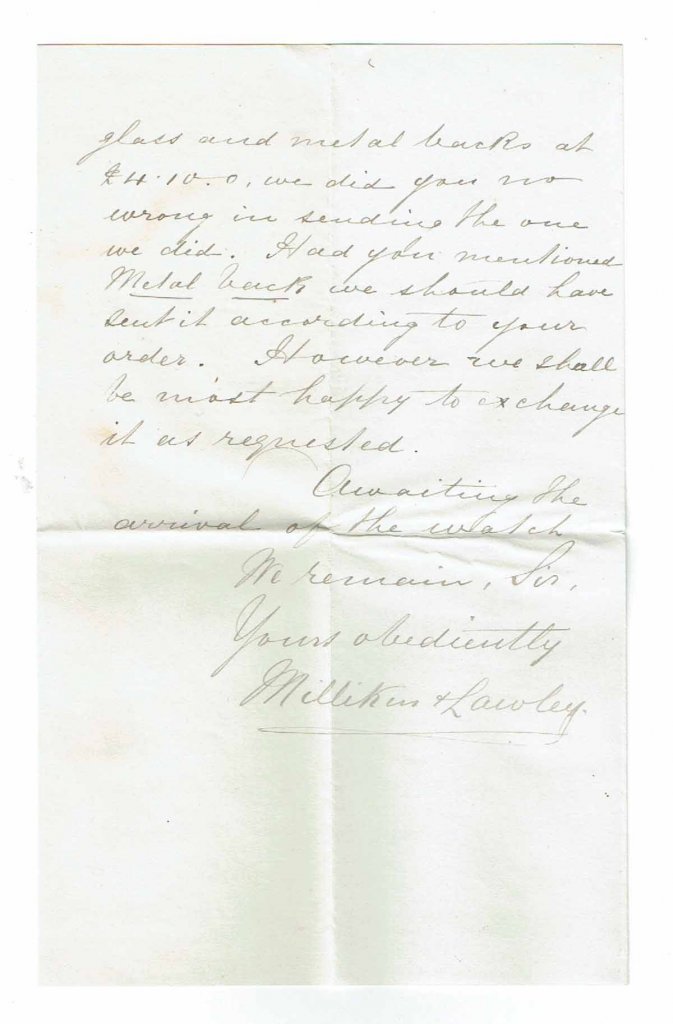 glass and metal backs at
£4.10.0, we did you no
wrong in sending the one
we did. Had you mentioned
Metal back we should have
sent it according to your
order. However we shall
be most happy to exchange
it as requested.
Awaiting the
arrival of the watch
We remain, Sir,
Yours obediently
Millikin & Lawley.